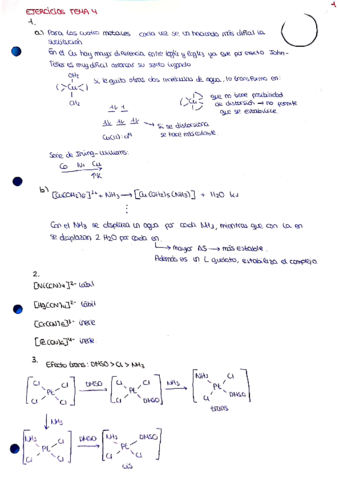 EJERCICIOS TEMA 4
1.
a) Para los cuatro metales cada vez se va haciendo más difícil la
sustitución
En el Cu hay mayor diferencia entre logk4 y logk5 ya que por efecto John-
Teller es muy difícil avanzar su sexto ligando
OH2
Cu
OH2
Si le quito otras dos moléculas de agua, lo transformo en:
Cu
que no tiene posibilidad
de distorsión → no permite
que se estabilice
Cu(II): d9
→ Si se distorsiona
se hace más estable
Serie de Irving-Williams:
Co Ni Cu
↑K
b) [Cu(OH2)6]2+ + NH3 → [Cu(OH2)5(NH3)] + H2O
Con el NH3 se desplaza un agua por cada NH3, mientras que con la en
se desplazan 2 H2O por cada en.
↳ mayor ΔS → más estable.
Además es un L quelato, estabiliza el complejo
2.
[Ni(CN)4]2- lábil
[Hg(CN)4]2- lábil
[Cr(CN)6]3- inerte
[Fe(CN)6]4- inerte
3.
Efecto trans: DMSO > Cl > NH3
[Cl Cl Pt Cl Cl] DMSO → [Cl Cl Pt Cl DMSO] NH3 → [NH3 Cl Pt Cl DMSO]
trans
↓ NH3
[NH3 Cl Pt Cl Cl] DMSO → [NH3 DMSO Pt Cl Cl]
cis